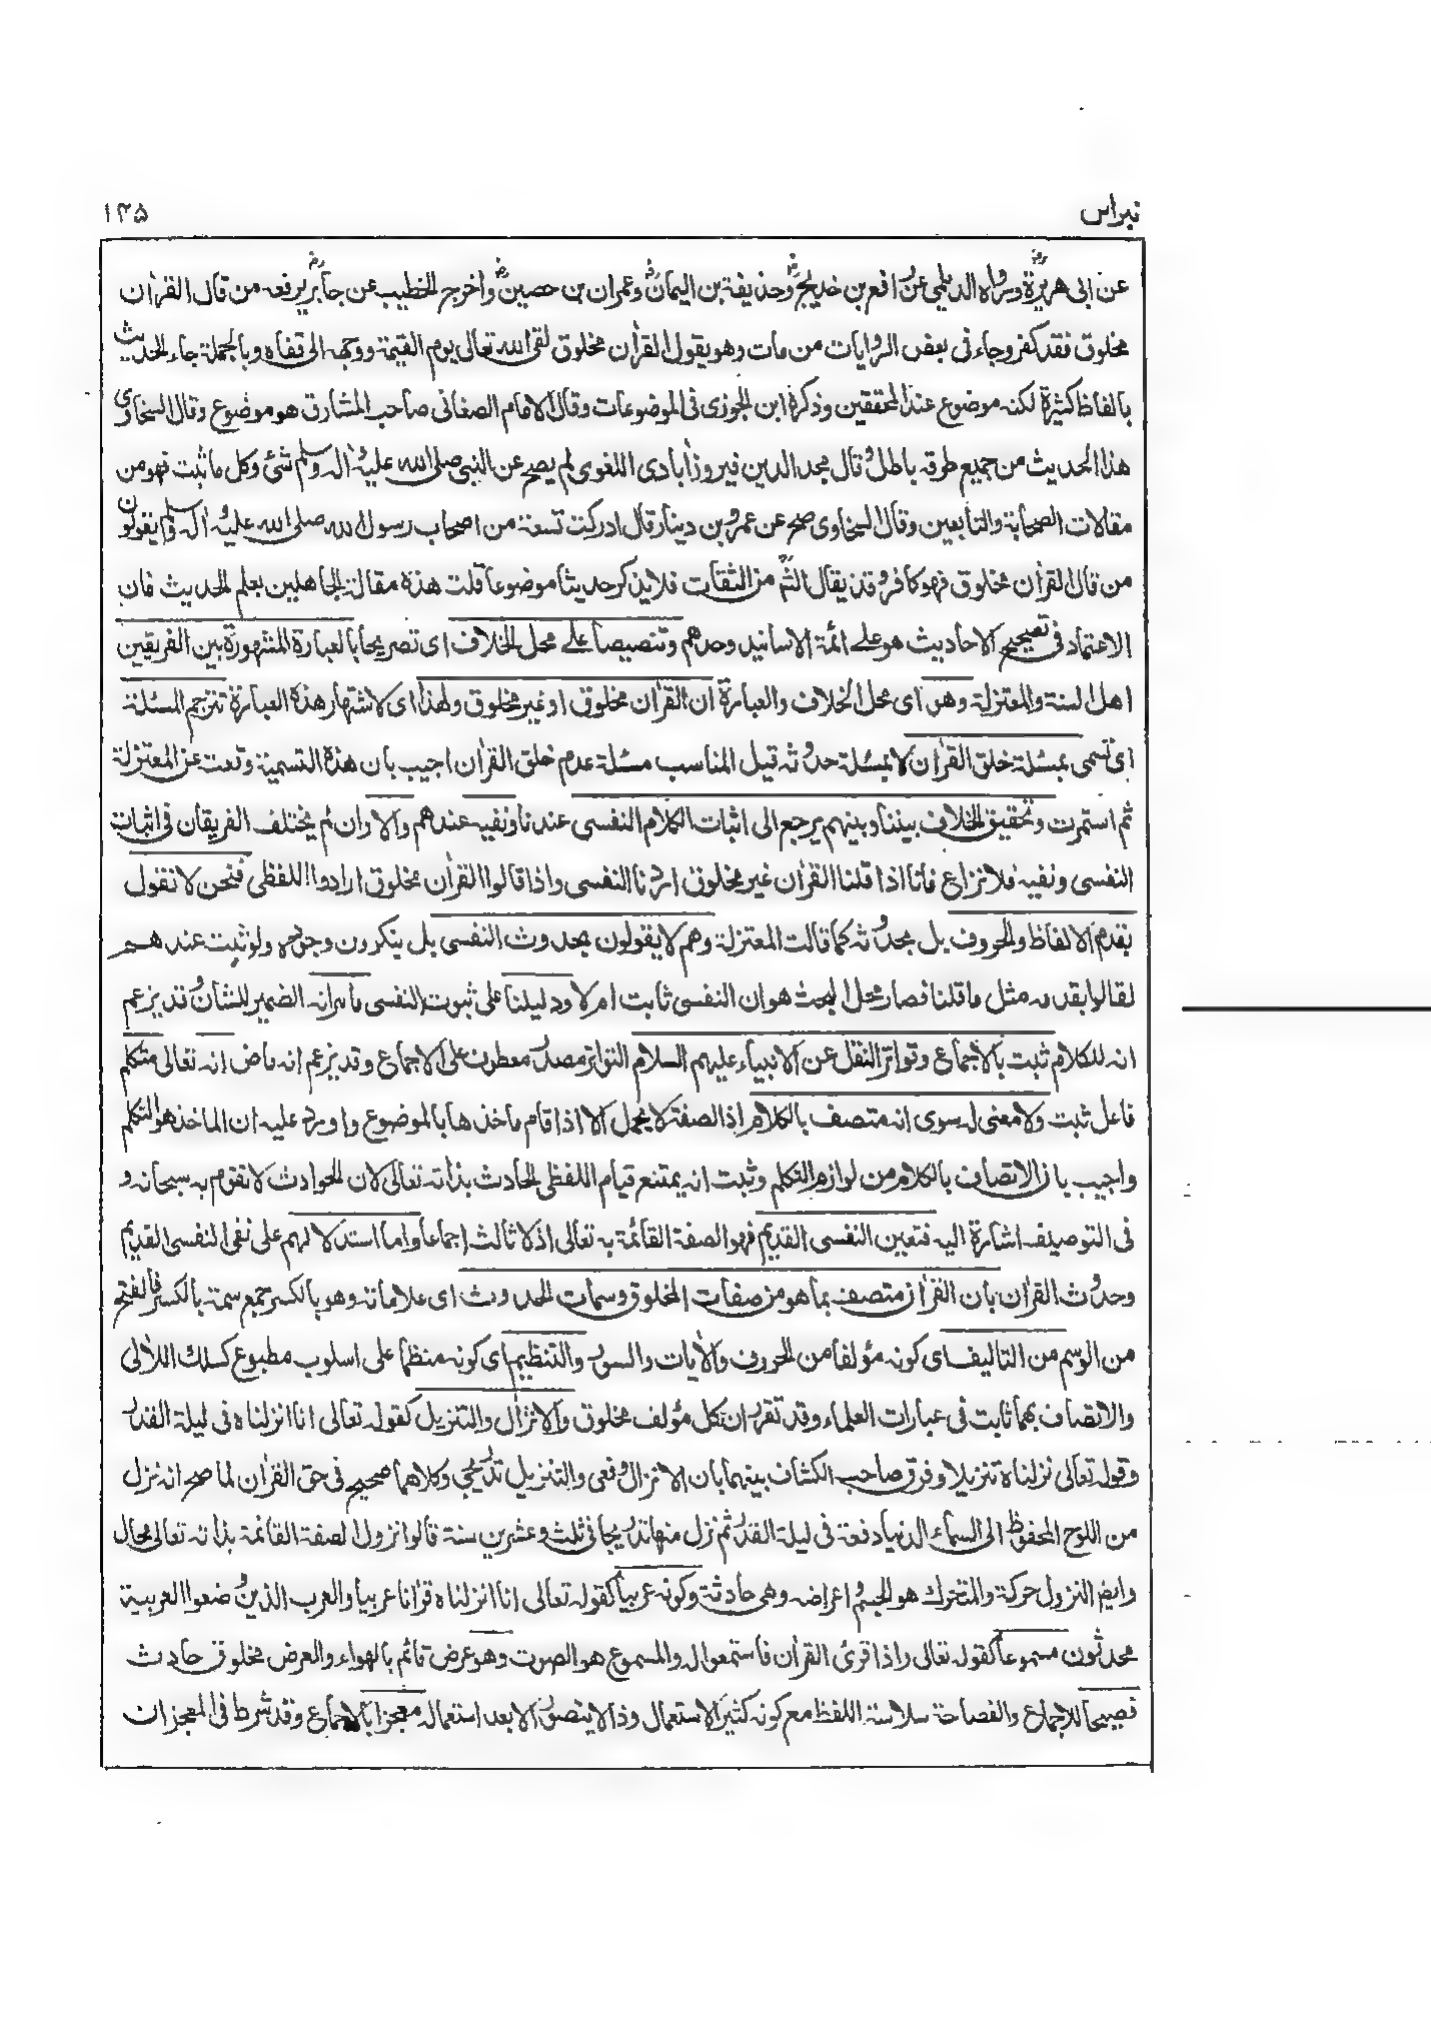 نبراس
۱۴۵
عن ابی هریرة ورواه الدیلمی عن رافع بن خدیج وحذیفة بن الیمان وعمران بن حصین واخرج الخطیب عن جابر یرفعه من قال القرآن
مخلوق فقد کفر وجاء فی بعض الروایات من مات وهو یقول القرآن مخلوق لقی الله تعالی یوم القیمة ووجهه الی قفاه وبالجملة جاء الحدیث
بالفاظ کثیرة لکنه موضوع عند المحققین وذکره ابن الجوزی فی الموضوعات وقال الامام الصغانی صاحب المشارق هو موضوع وقال السخاوی
هذا الحدیث من جمیع طرقه باطل وقال مجد الدین فیروزآبادی اللغوی لم یصح عن النبی صلی الله علیه وآله وسلم شئ وکل ما ثبت فهو من
مقالات الصحابة والتابعین وقال السخاوی صح عن عمرو بن دینار قال ادرکت تسعة من اصحاب رسول الله صلی الله علیه وآله وسلم یقولون
من قال القرآن مخلوق فهو کافر وقد یقال الش من الثقات فلا یذکر حدیثا موضوعا قلت هذه مقالة الجاهلین بعلم الحدیث فان
الاعتماد فی تصحیح الاحادیث هو علی ائمة الاسانید وحدهم وتنصیصا علی محل الخلاف ای تصریحا بالعبارة المشهورة بین الفریقین
اهل السنة والمعتزلة وهو ای محل الخلاف والعبارة ان القرآن مخلوق او غیر مخلوق ولهذا ای لاشتهار هذه العبارة تترجم المسئلة
ای تسمی بمسئلة خلق القرآن لا بمسئلة حدوثه قیل المناسب مسئلة عدم خلق القرآن اجیب بان هذه التسمیة وقعت عن المعتزلة
ثم استمرت وتحقیق الخلاف بیننا وبینهم یرجع الی اثبات الکلام النفسی عندنا ونفیه عندهم والا وان لم یختلف الفریقان فی اثبات
النفسی ونفیه فلا نزاع فانا اذا قلنا القرآن غیر مخلوق اردنا النفسی واذا قالوا القرآن مخلوق ارادوا اللفظی فنحن لا نقول
بقدم الالفاظ والحروف بل بحدوثه کما قالت المعتزلة وهم لا یقولون بحدوث النفسی بل ینکرون وجوده ولو ثبت عندهم
لقالوا بقدمه مثل ما قلنا فصار محل البحث هو ان النفسی ثابت ام لا ودلیلنا علی ثبوت النفسی ما مر انه الضمیر للشان وقد یزعم
انه للکلام ثبت بالاجماع وتواتر النقل عن الانبیاء علیهم السلام التواتر مصدر معطوف علی الاجماع وقد یزعم انه ماض انه تعالی متکلم
فاعل ثبت ولا معنی له سوی انه متصف بالکلام اذ الصفة لا یحمل الا اذا قام ماخذها بالموضوع واورد علیه ان الماخذ هو التکلم
واجیب بان الاتصاف بالکلام من لوازم التکلم وثبت انه یمتنع قیام اللفظی الحادث بذاته تعالی لان الحوادث لا تقوم به سبحانه و
فی التوصیف اشارة الیه فتعین النفسی القدیم فهو الصفة القائمة به تعالی اذ لا ثالث اجماعا واما استدلالهم علی نفی النفسی القدیم
وحدوث القرآن بان القرآن متصف بما هو من صفات المخلوق وسمات الحدوث ای علاماته وهو بالکسر جمع سمة بالکسر فالفتح
من الوسم من التالیف ای کونه مؤلفا من الحروف والآیات والسور والتنظیم ای کونه منظما علی اسلوب مطبوع کسلک اللآلی
والاتصاف بهما ثابت فی عبارات العلماء وقد تقرر ان کل مؤلف مخلوق والانزال والتنزیل کقوله تعالی انا انزلناه فی لیلة القدر
وقوله تعالی نزلناه تنزیلا وفرق صاحب الکشاف بینهما بان الانزال دفعی والتنزیل تدریجی وکلاهما صحیح فی حق القرآن لما صح انه نزل
من اللوح المحفوظ الی السماء الدنیا دفعة فی لیلة القدر ثم نزل منها تدریجا فی ثلث وعشرین سنة قالوا نزول الصفة القائمة بذاته تعالی محال
وایضا النزول حرکة والمتحرک هو الجسم واعراضه وهی حادثة وکونه عربیا کقوله تعالی انا انزلناه قرآنا عربیا والعرب الذین وضعوا العربیة
محدثون مسموعا کقوله تعالی واذا قرئ القرآن فاستمعوا له والمسموع هو الصوت وهو عرض قائم بالهواء والعرض مخلوق حادث
فصیحا للاجماع والفصاحة سلاسة اللفظ مع کونه کثیر الاستعمال وذا لا یتصور الا بعد استعماله معجزا بالاجماع وقد شرط فی المعجز ان